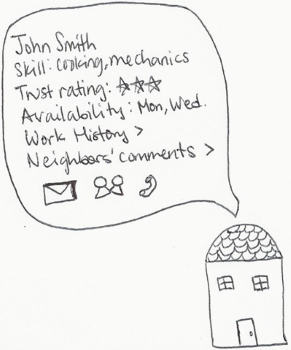 John Smith
Skill: cooking, mechanics
Trust rating: ☆☆☆
Availability: Mon, Wed.
Work History >
Neighbors' comments >